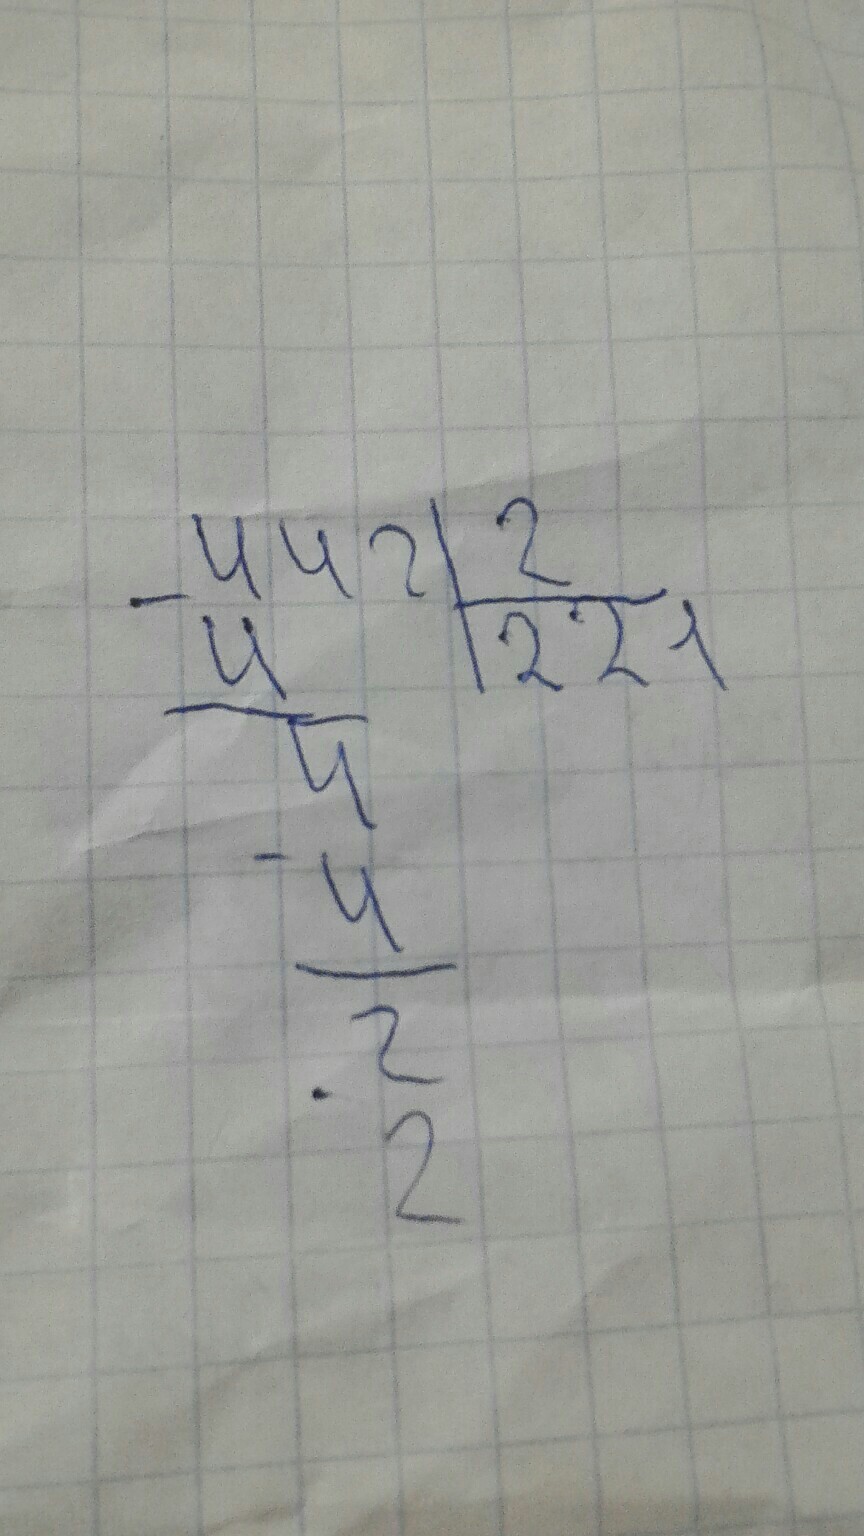 442 2
- 4 221
4
- 4
2
2